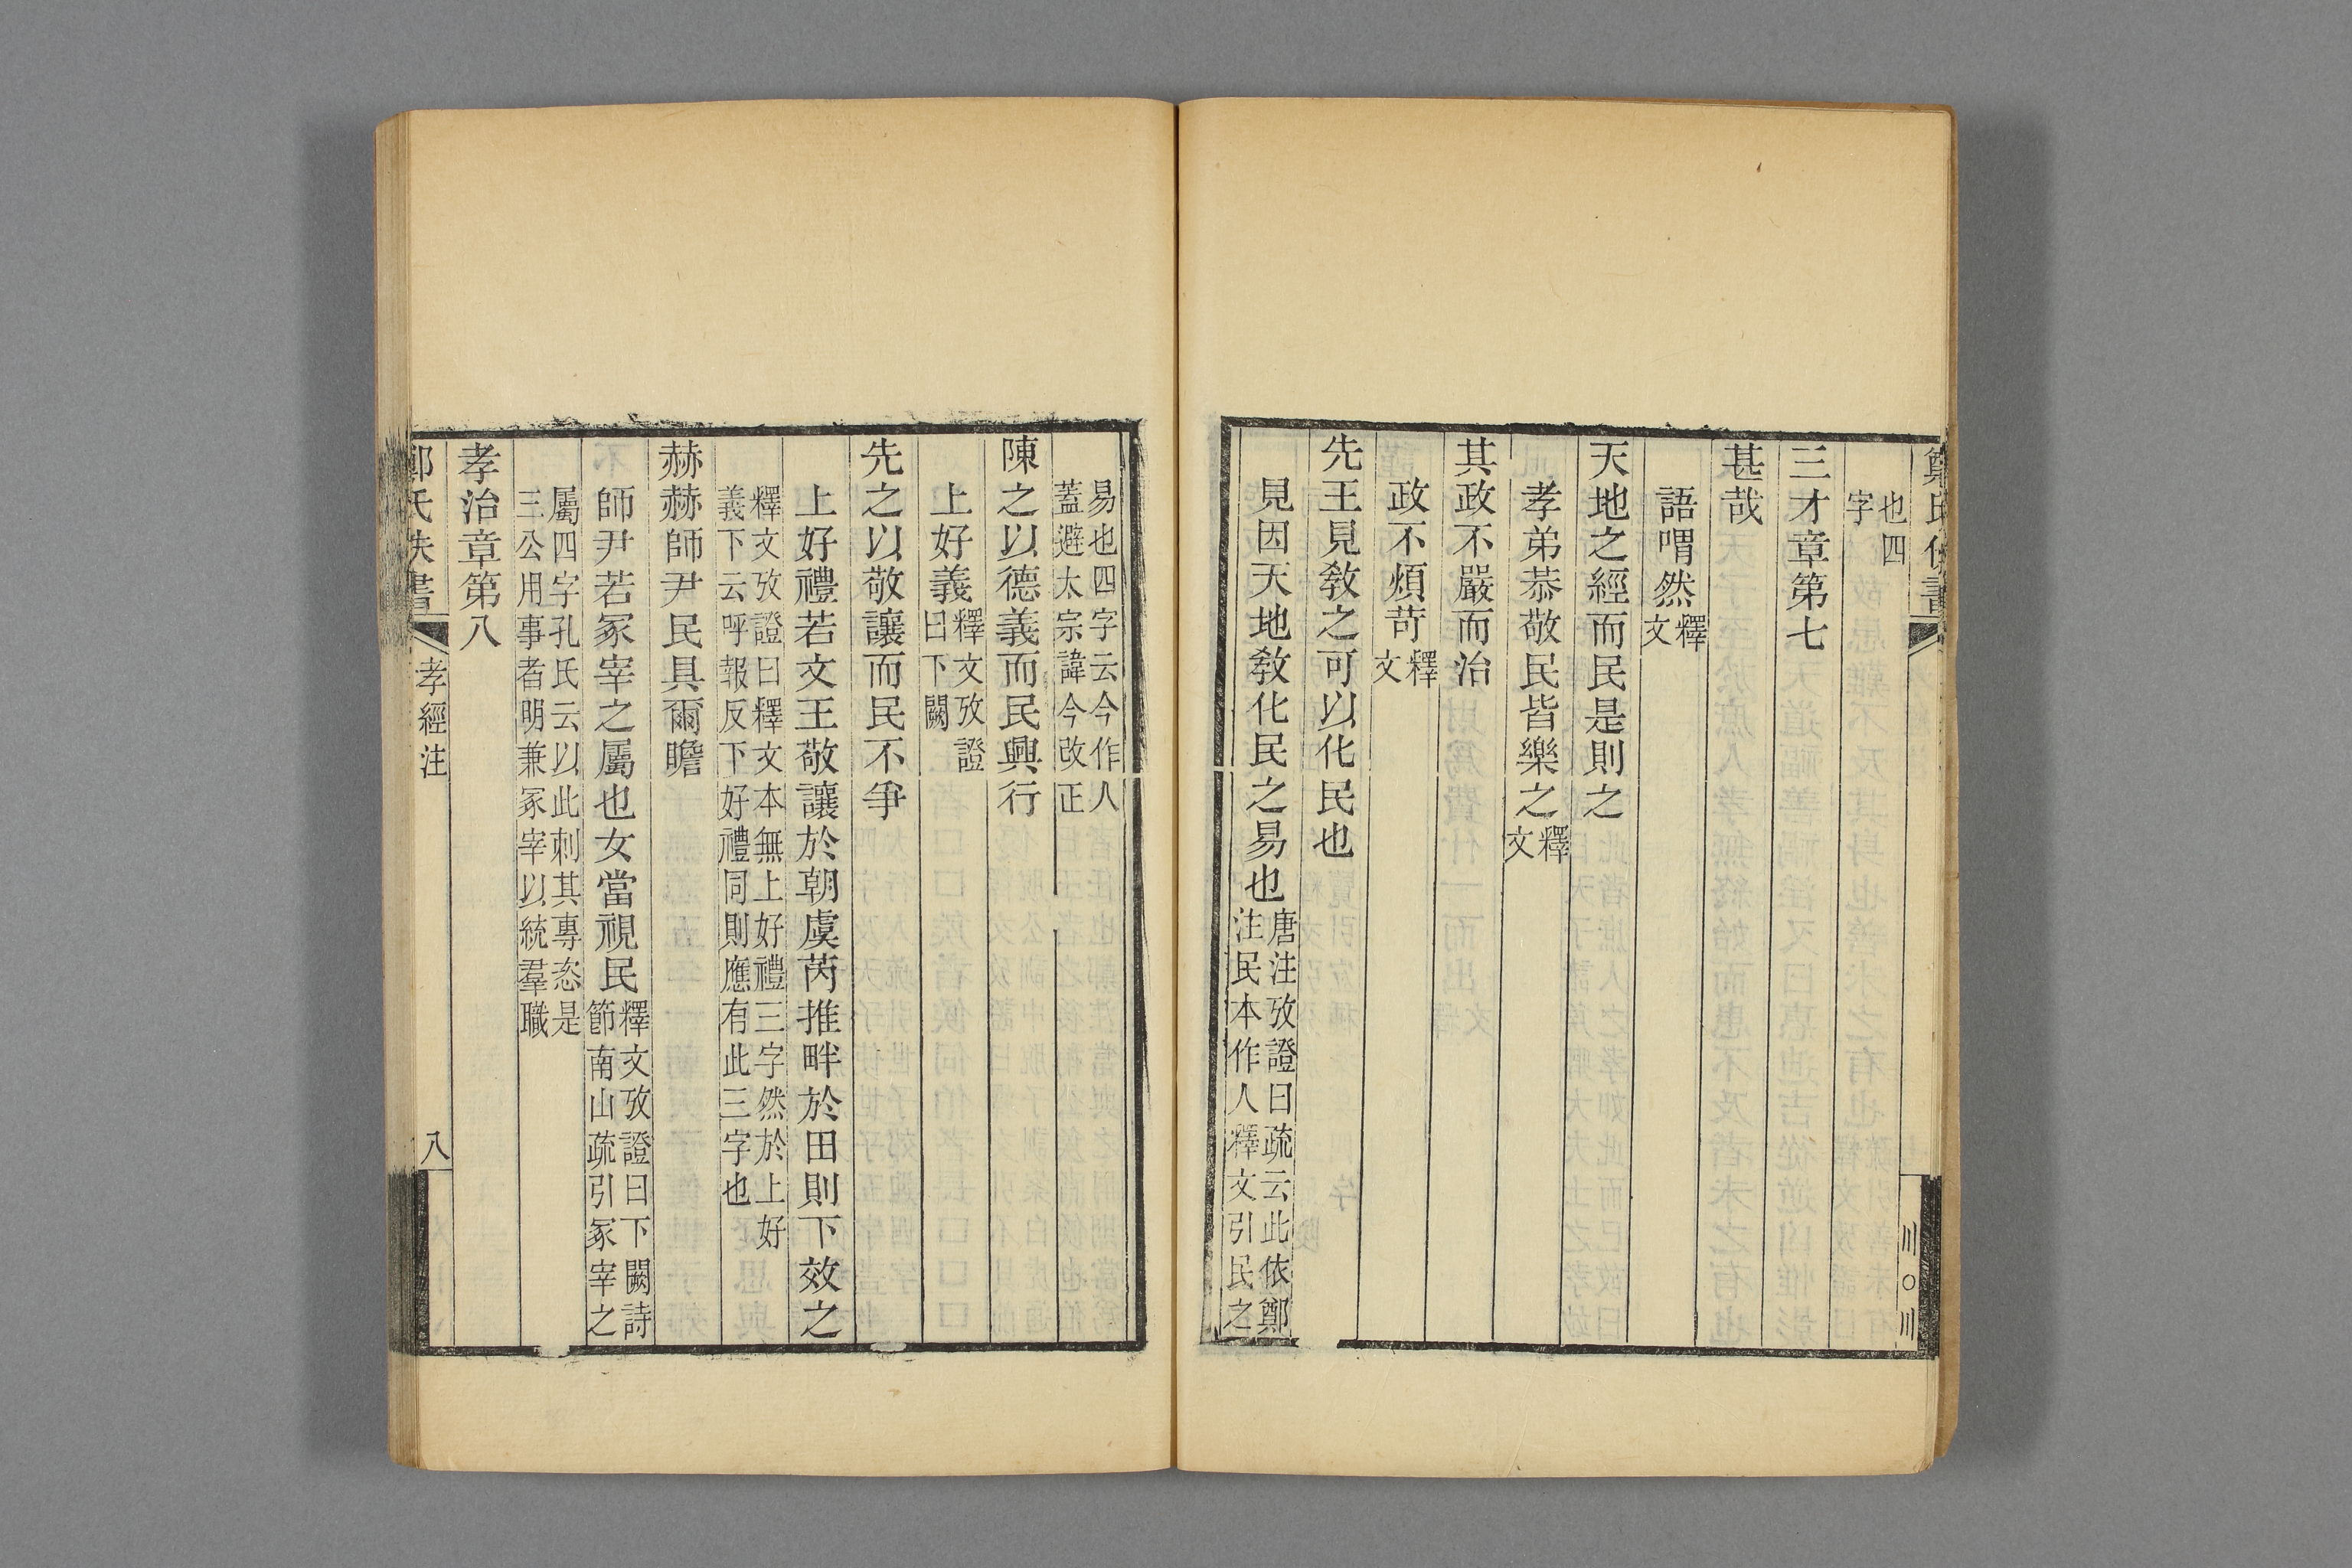 鄭氏佚書
也四
字
三才章第七
甚哉
語喟然釋文
天地之經而民是則之
孝弟恭敬民皆樂之釋文
其政不嚴而治
政不煩苛釋文
先王見敎之可以化民也
見因天地敎化民之易也唐注攷證曰疏云此依鄭
注民本作人釋文引民之
易也四字云今作人
蓋避太宗諱今改正
陳之以德義而民興行
上好義釋文攷證
曰下闕
先之以敬讓而民不爭
上好禮若文王敬讓於朝虞芮推畔於田則下效之
釋文攷證曰釋文本無上好禮三字然於上好
義下云呼報反下好禮同則應有此三字也
赫赫師尹民具爾瞻
師尹若冢宰之屬也女當視民釋文攷證曰下闕詩
節南山疏引冢宰之
屬四字孔氏云以此刺其專恣是
三公用事者明兼冢宰以統羣職
孝治章第八
鄭氏佚書
孝經注
八